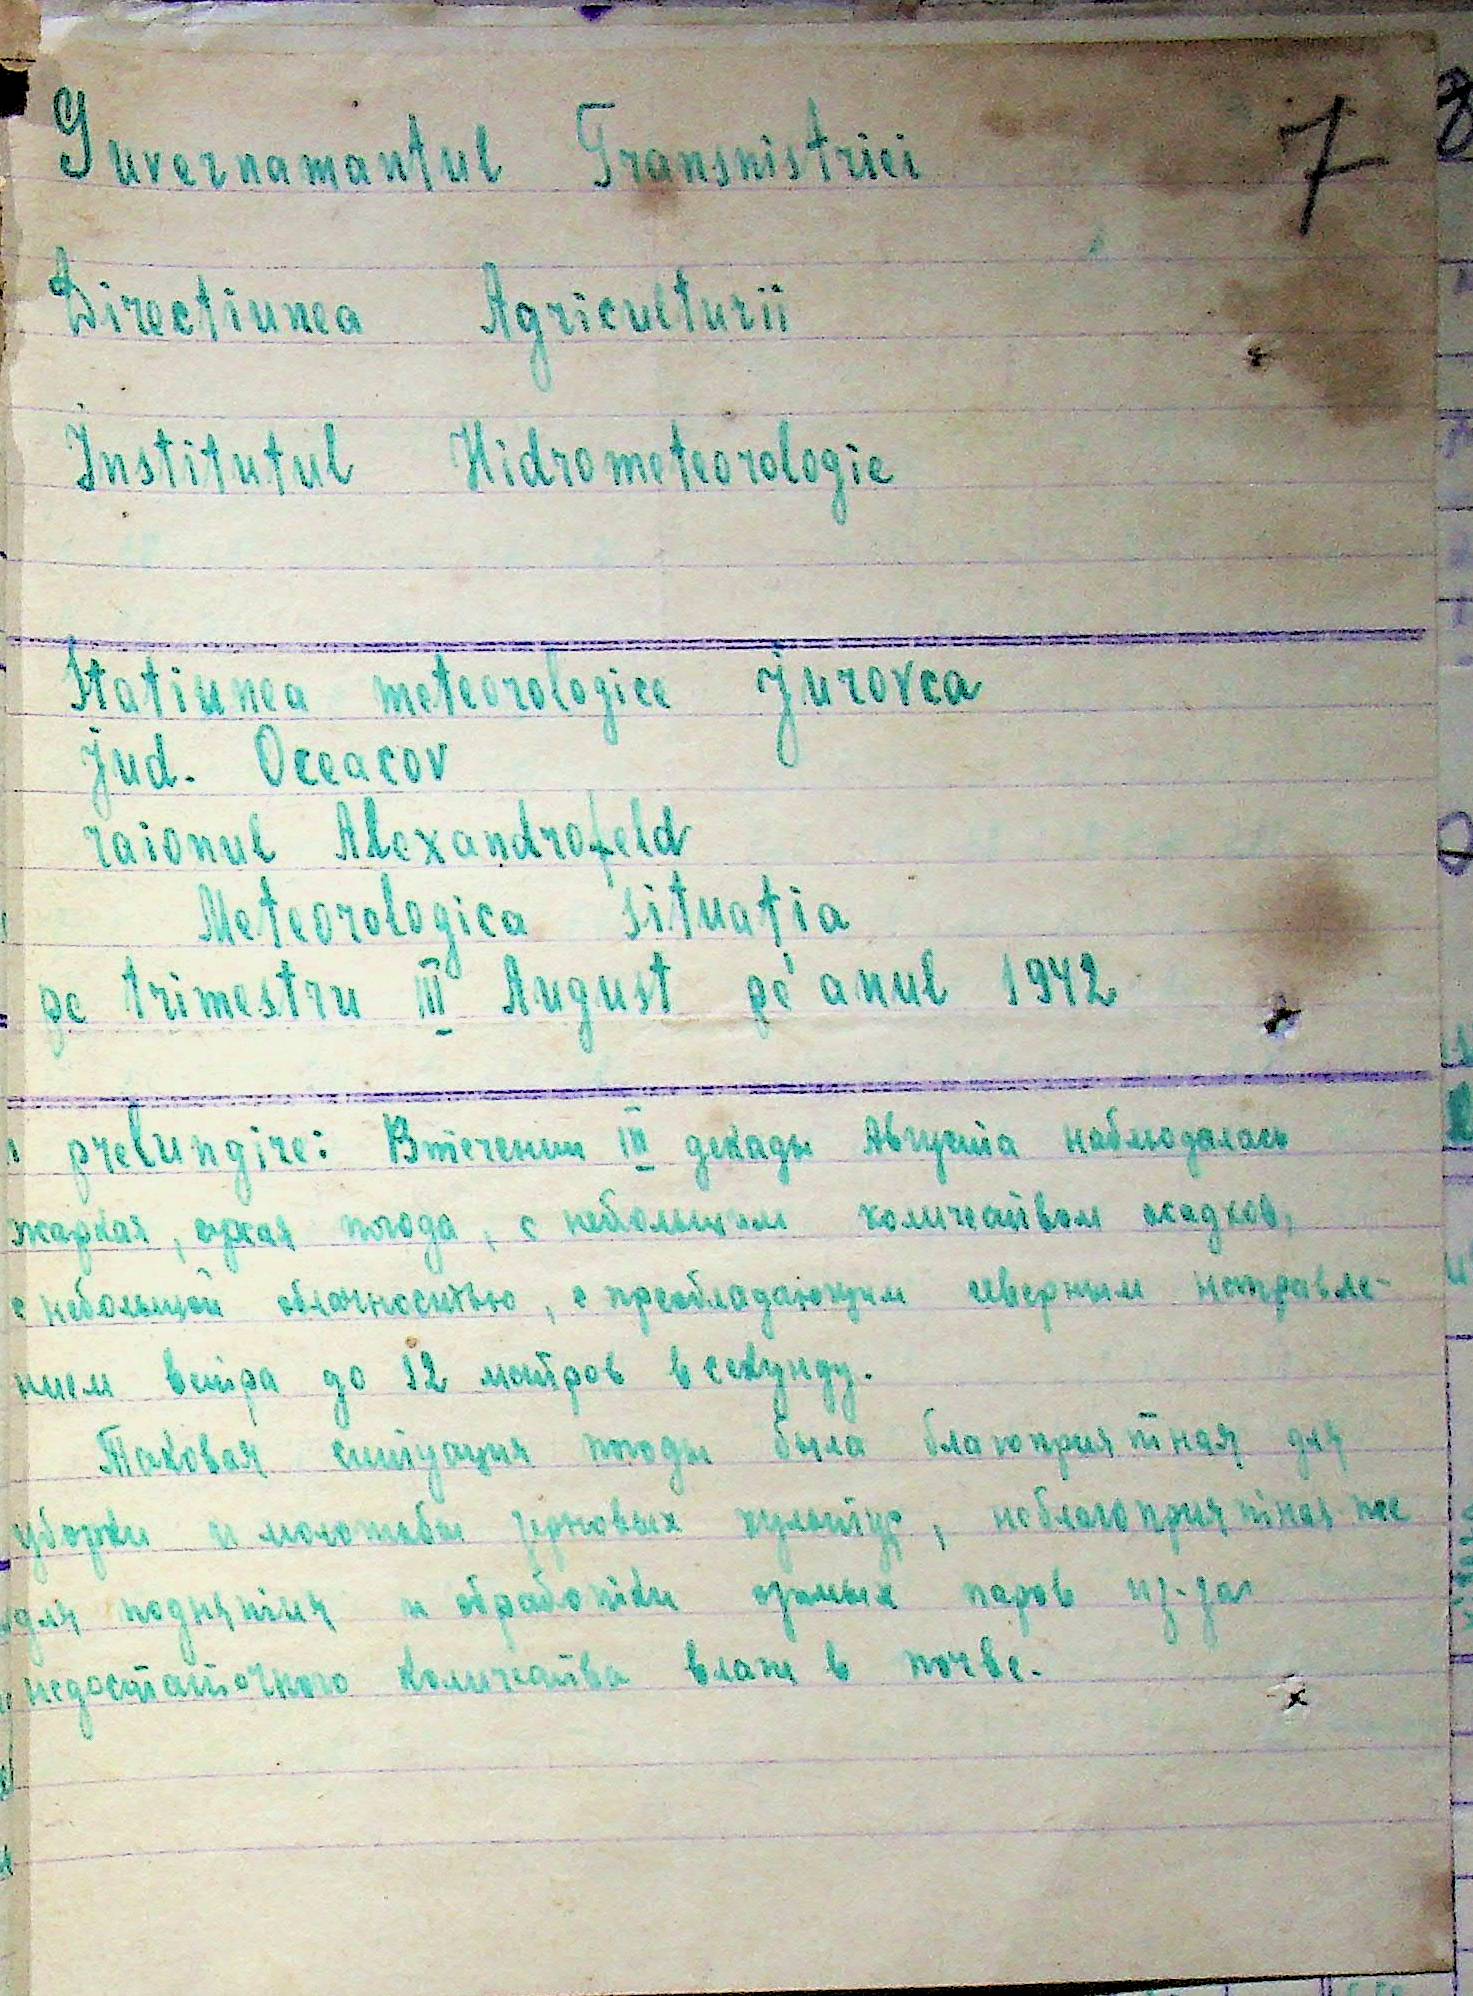 7
Guvernamantul Transnistriei
Directiunea Agriculturii
Institutul Hidrometeorologic
Statiunea meteorologice Jurovca
jud. Oceacov
raionul Alexandrofeld
Meteorologica situaţia
pe trimestru III August pe anul 1942
prelungire: Втечении III декады Августа наблюдалась
жаркая, сухая погода, с небольшим количеством осадков,
с небольшой облачностью, с преобладающим северным направле-
нием ветра до 12 метров в секунду.
Таковая ситуация погоды была благоприятная для
уборки и молотьбы зерновых культур, неблагоприятная же
для поднятия и обработки озимых паров из-за
недостаточного количества влаги в почве.